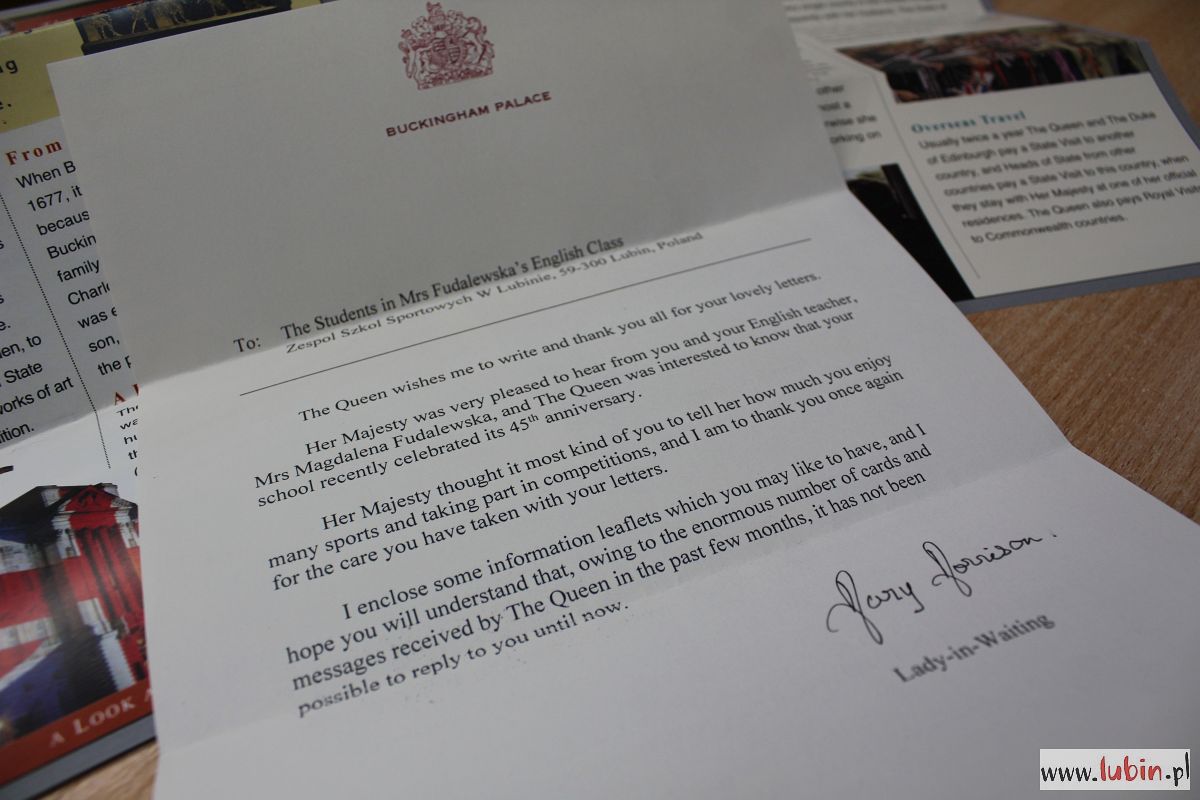 BUCKINGHAM PALACE
To: The Students in Mrs Fudalewska's English Class
Zespol Szkol Sportowych W Lubinie, 59-300 Lubin, Poland
The Queen wishes me to write and thank you all for your lovely letters.
Her Majesty was very pleased to hear from you and your English teacher,
Mrs Magdalena Fudalewska, and The Queen was interested to know that your
school recently celebrated its 45th anniversary.
Her Majesty thought it most kind of you to tell her how much you enjoy
many sports and taking part in competitions, and I am to thank you once again
for the care you have taken with your letters.
I enclose some information leaflets which you may like to have, and I
hope you will understand that, owing to the enormous number of cards and
messages received by The Queen in the past few months, it has not been
possible to reply to you until now.
Mary Morrison.
Lady-in-Waiting
From
When B
1677, it
becaus
Buckin
family
Charle
was e
son,
the p
en, to
State
works of art
ition.
A LOOK A
other
most a
rwise she
orking on
Overseas Travel
Usually twice a year The Queen and The Duke
of Edinburgh pay a State Visit to another
country, and Heads of State from other
countries pay a State Visit to this country, when
they stay with Her Majesty at one of her official
residences. The Queen also pays Royal Visits
to Commonwealth countries.
www.lubin.pl